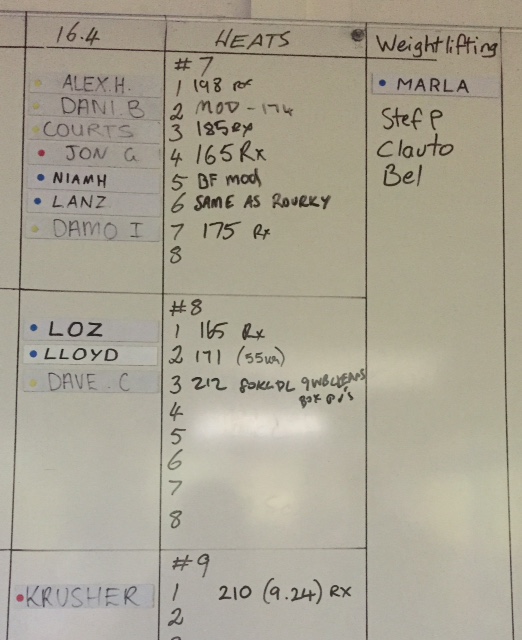 16.4 HEATS Weightlifting
#7
ALEX.H. 1 198 rx • MARLA
DANI.B 2 MOD - 174 Stef P
COURTS 3 185 Rx Clauto
• JON G 4 165 Rx Bel
• NIAMH 5 BF mod
• LANZ 6 SAME AS ROURKY
DAMO I 7 175 Rx
8
#8
• LOZ 1 165 Rx
• LLOYD 2 171
DAVE.C 3 212
4
5
6
7
8
#9
• KRUSHER 1 210 (9.24) RX
2